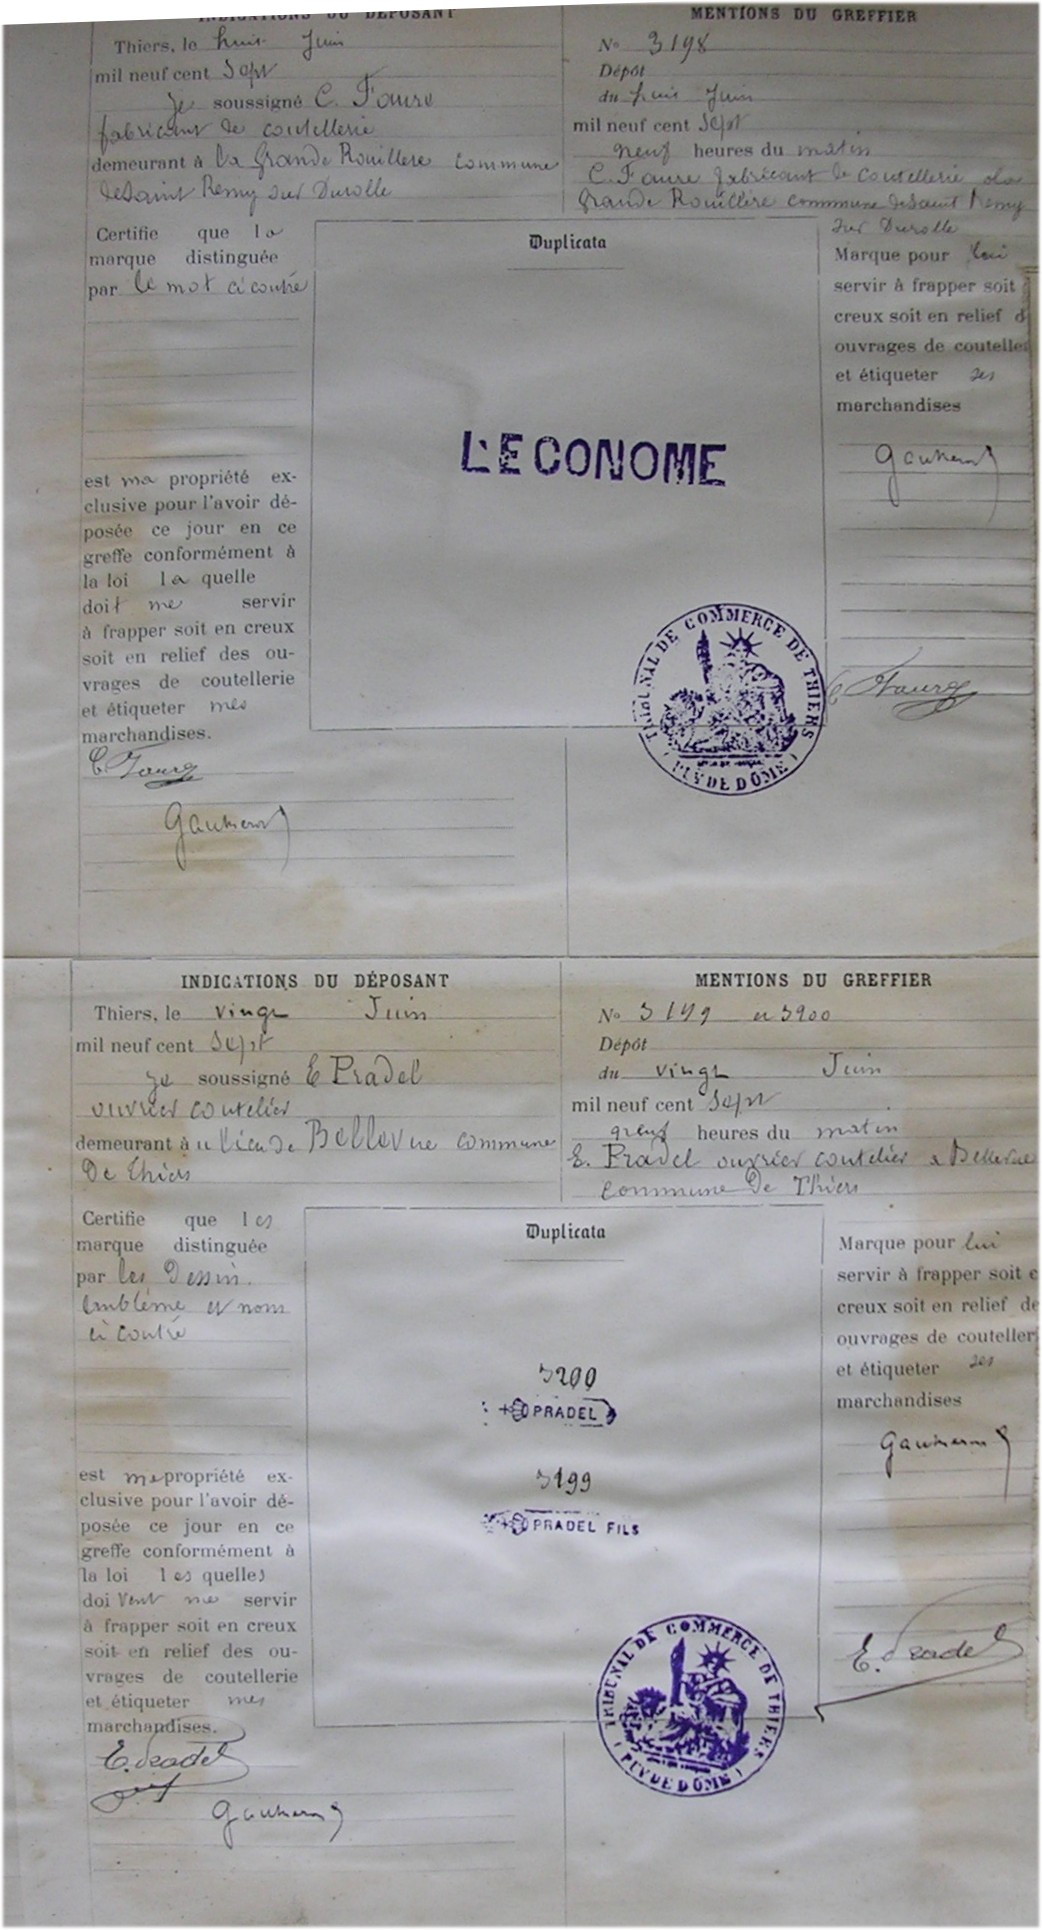 INDICATIONS DU DÉPOSANT
Thiers, le huit Juin
mil neuf cent Sept
Je soussigné C. Faure
fabricant de coutellerie
demeurant à la Grande Rouillere commune
de Saint Remy sur Durolle
MENTIONS DU GREFFIER
No 3198
Dépôt
du huit Juin
mil neuf cent Sept
neuf heures du matin
C. Faure fabricant de coutellerie à la
Grande Rouillère commune de Saint Remy
sur Durolle
Certifie que la
marque distinguée
par le mot ci contre
est ma propriété ex-
clusive pour l'avoir dé-
posée ce jour en ce
greffe conformément à
la loi la quelle
doit me servir
à frapper soit en creux
soit en relief des ou-
vrages de coutellerie
et étiqueter mes
marchandises.
C. Faure
Duplicata
L'ECONOME
TRIBUNAL DE COMMERCE DE THIERS
(PUY DE DÔME)
Marque pour lui
servir à frapper soit
creux soit en relief d
ouvrages de coutelle
et étiqueter ses
marchandises
C. Faure
INDICATIONS DU DÉPOSANT
Thiers, le vingt Juin
mil neuf cent Sept
Je soussigné E Pradel
ouvrier coutelier
demeurant au lieu de Bellevue commune
De Thiers
MENTIONS DU GREFFIER
No 3199 et 3200
Dépôt
du vingt Juin
mil neuf cent Sept
neuf heures du matin
E. Pradel ouvrier coutelier à Bellevue
commune De Thiers
Certifie que les
marque distinguée
par les Dessin
emblème et nom
ci contre
est ma propriété ex-
clusive pour l'avoir dé-
posée ce jour en ce
greffe conformément à
la loi les quelles
doivent me servir
à frapper soit en creux
soit en relief des ou-
vrages de coutellerie
et étiqueter mes
marchandises.
E. Pradel
Duplicata
3200
PRADEL
3199
PRADEL FILS
TRIBUNAL DE COMMERCE DE THIERS
(PUY DE DÔME)
Marque pour lui
servir à frapper soit e
creux soit en relief de
ouvrages de couteller
et étiqueter ses
marchandises
E. Pradel